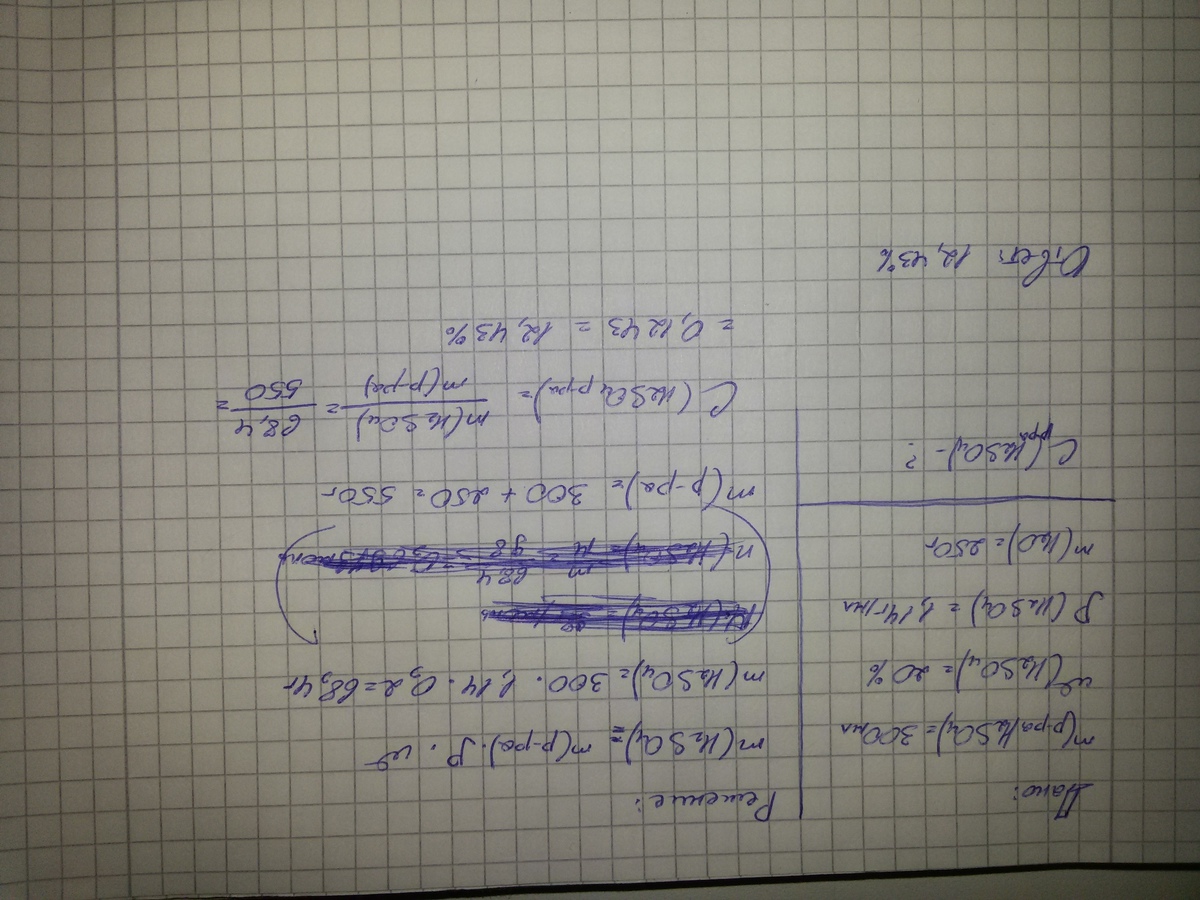 Дано:
m(р-ра H2SO4) = 300мл
ω(H2SO4) = 20%
ρ(H2SO4) = 1,14г/мл
m(H2O) = 250г
C(H2SO4) - ?
р-ра
Решение:
m(H2SO4) = m(р-ра) · ρ · ω
m(H2SO4) = 300 · 1,14 · 0,2 = 68,4г
n(H2SO4) = m/M = 68,4/98 =
m(р-ра) = 300 + 250 = 550г
C(H2SO4 р-ра) = m(H2SO4)/m(р-ра) = 68,4/550 =
= 0,1243 = 12,43%
Ответ: 12,43%